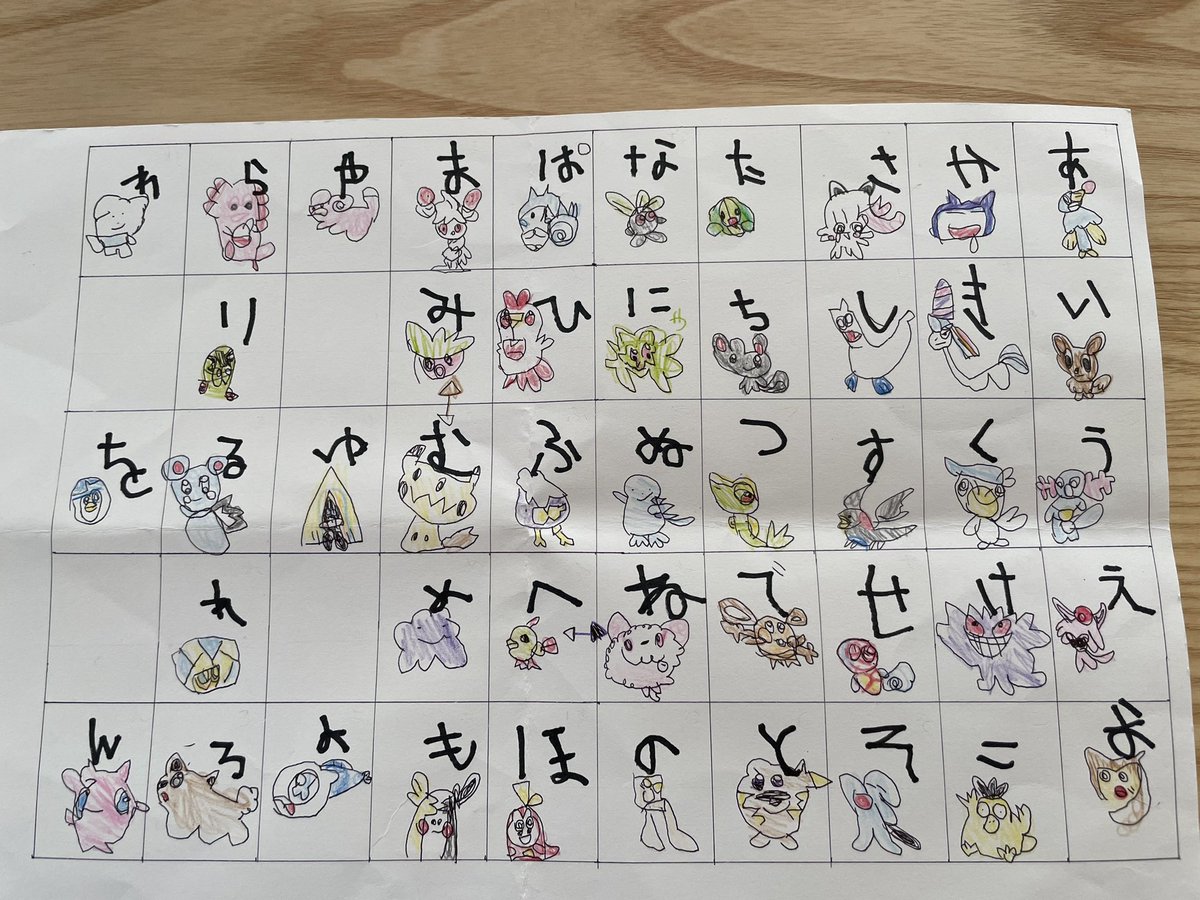 あいうえお
かきくけこ
さしすせそ
たちつでと
なにぬねの
ぱひふへほ
まみむめも
やゆよ
らりるれろ
わをん